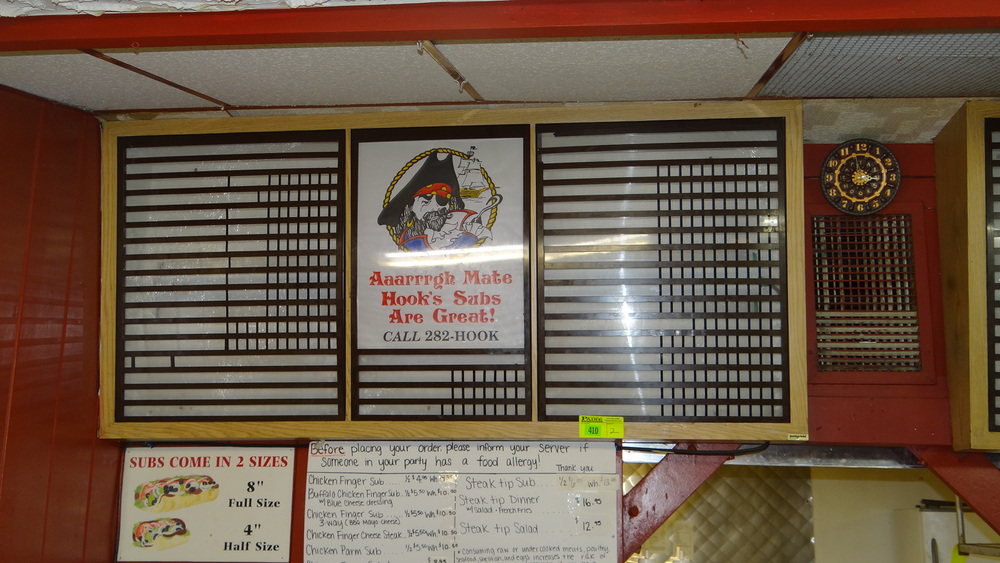 Aaarrrgh Mate
Hook's Subs
Are Great!
CALL 282-HOOK
12
1
2
3
4
5
6
7
8
9
10
11
410
2
SUBS COME IN 2 SIZES
8"
Full Size
4"
Half Size
Before placing your order, please inform your server if
someone in your party has a food allergy!
Thank you
Chicken Finger Sub
Buffalo Chicken Finger Sub
w/ Blue cheese dressing
Chicken Finger Sub
3 way (BBQ Mayo cheese)
Chicken Finger Cheese Steak
Chicken Parm Sub
Steak tip Sub
Steak tip Dinner $16.95
w/ Salad - French fries
Steak tip Salad $12.95
* Consuming raw or undercooked meats, poultry,
seafood, shellfish, and eggs increases the risk of